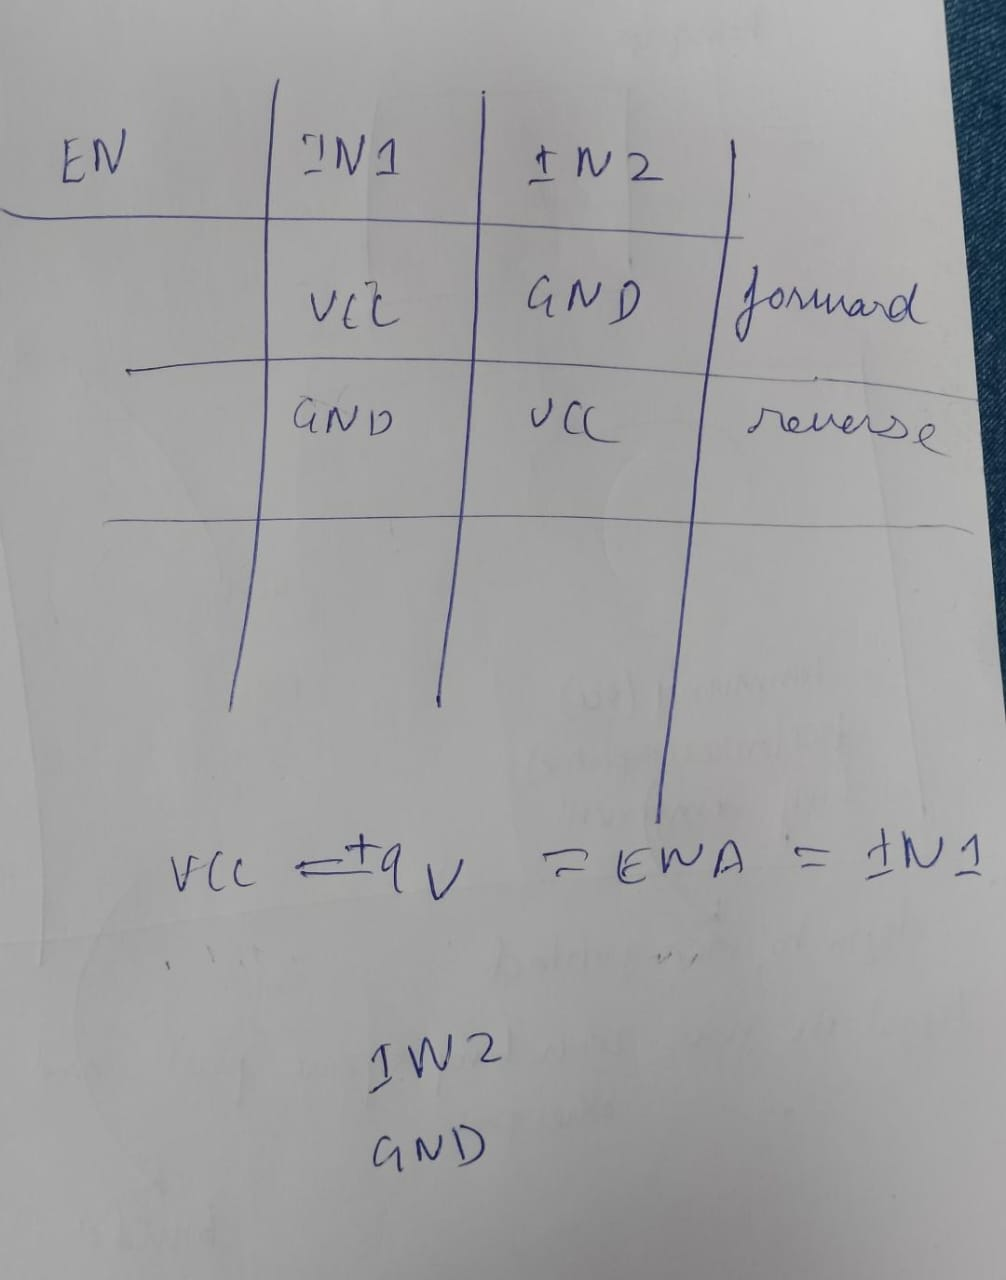 EN IN1 IN2
VCC GND forward
GND VCC reverse
VCC = +9V = ENA = IN1
IN2
GND